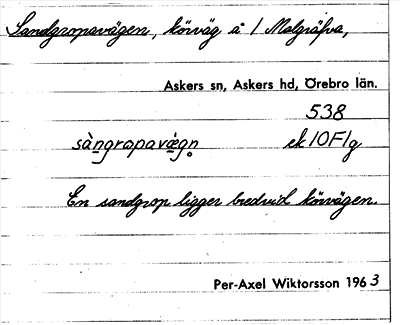 Sandgropavägen, körväg å 1 Malgräfva,
Askers sn, Askers hd, Örebro län.
538
sàngrapavægn ek 10F1g
En sandgrop ligger bredvid körvägen.
Per-Axel Wiktorsson 1963